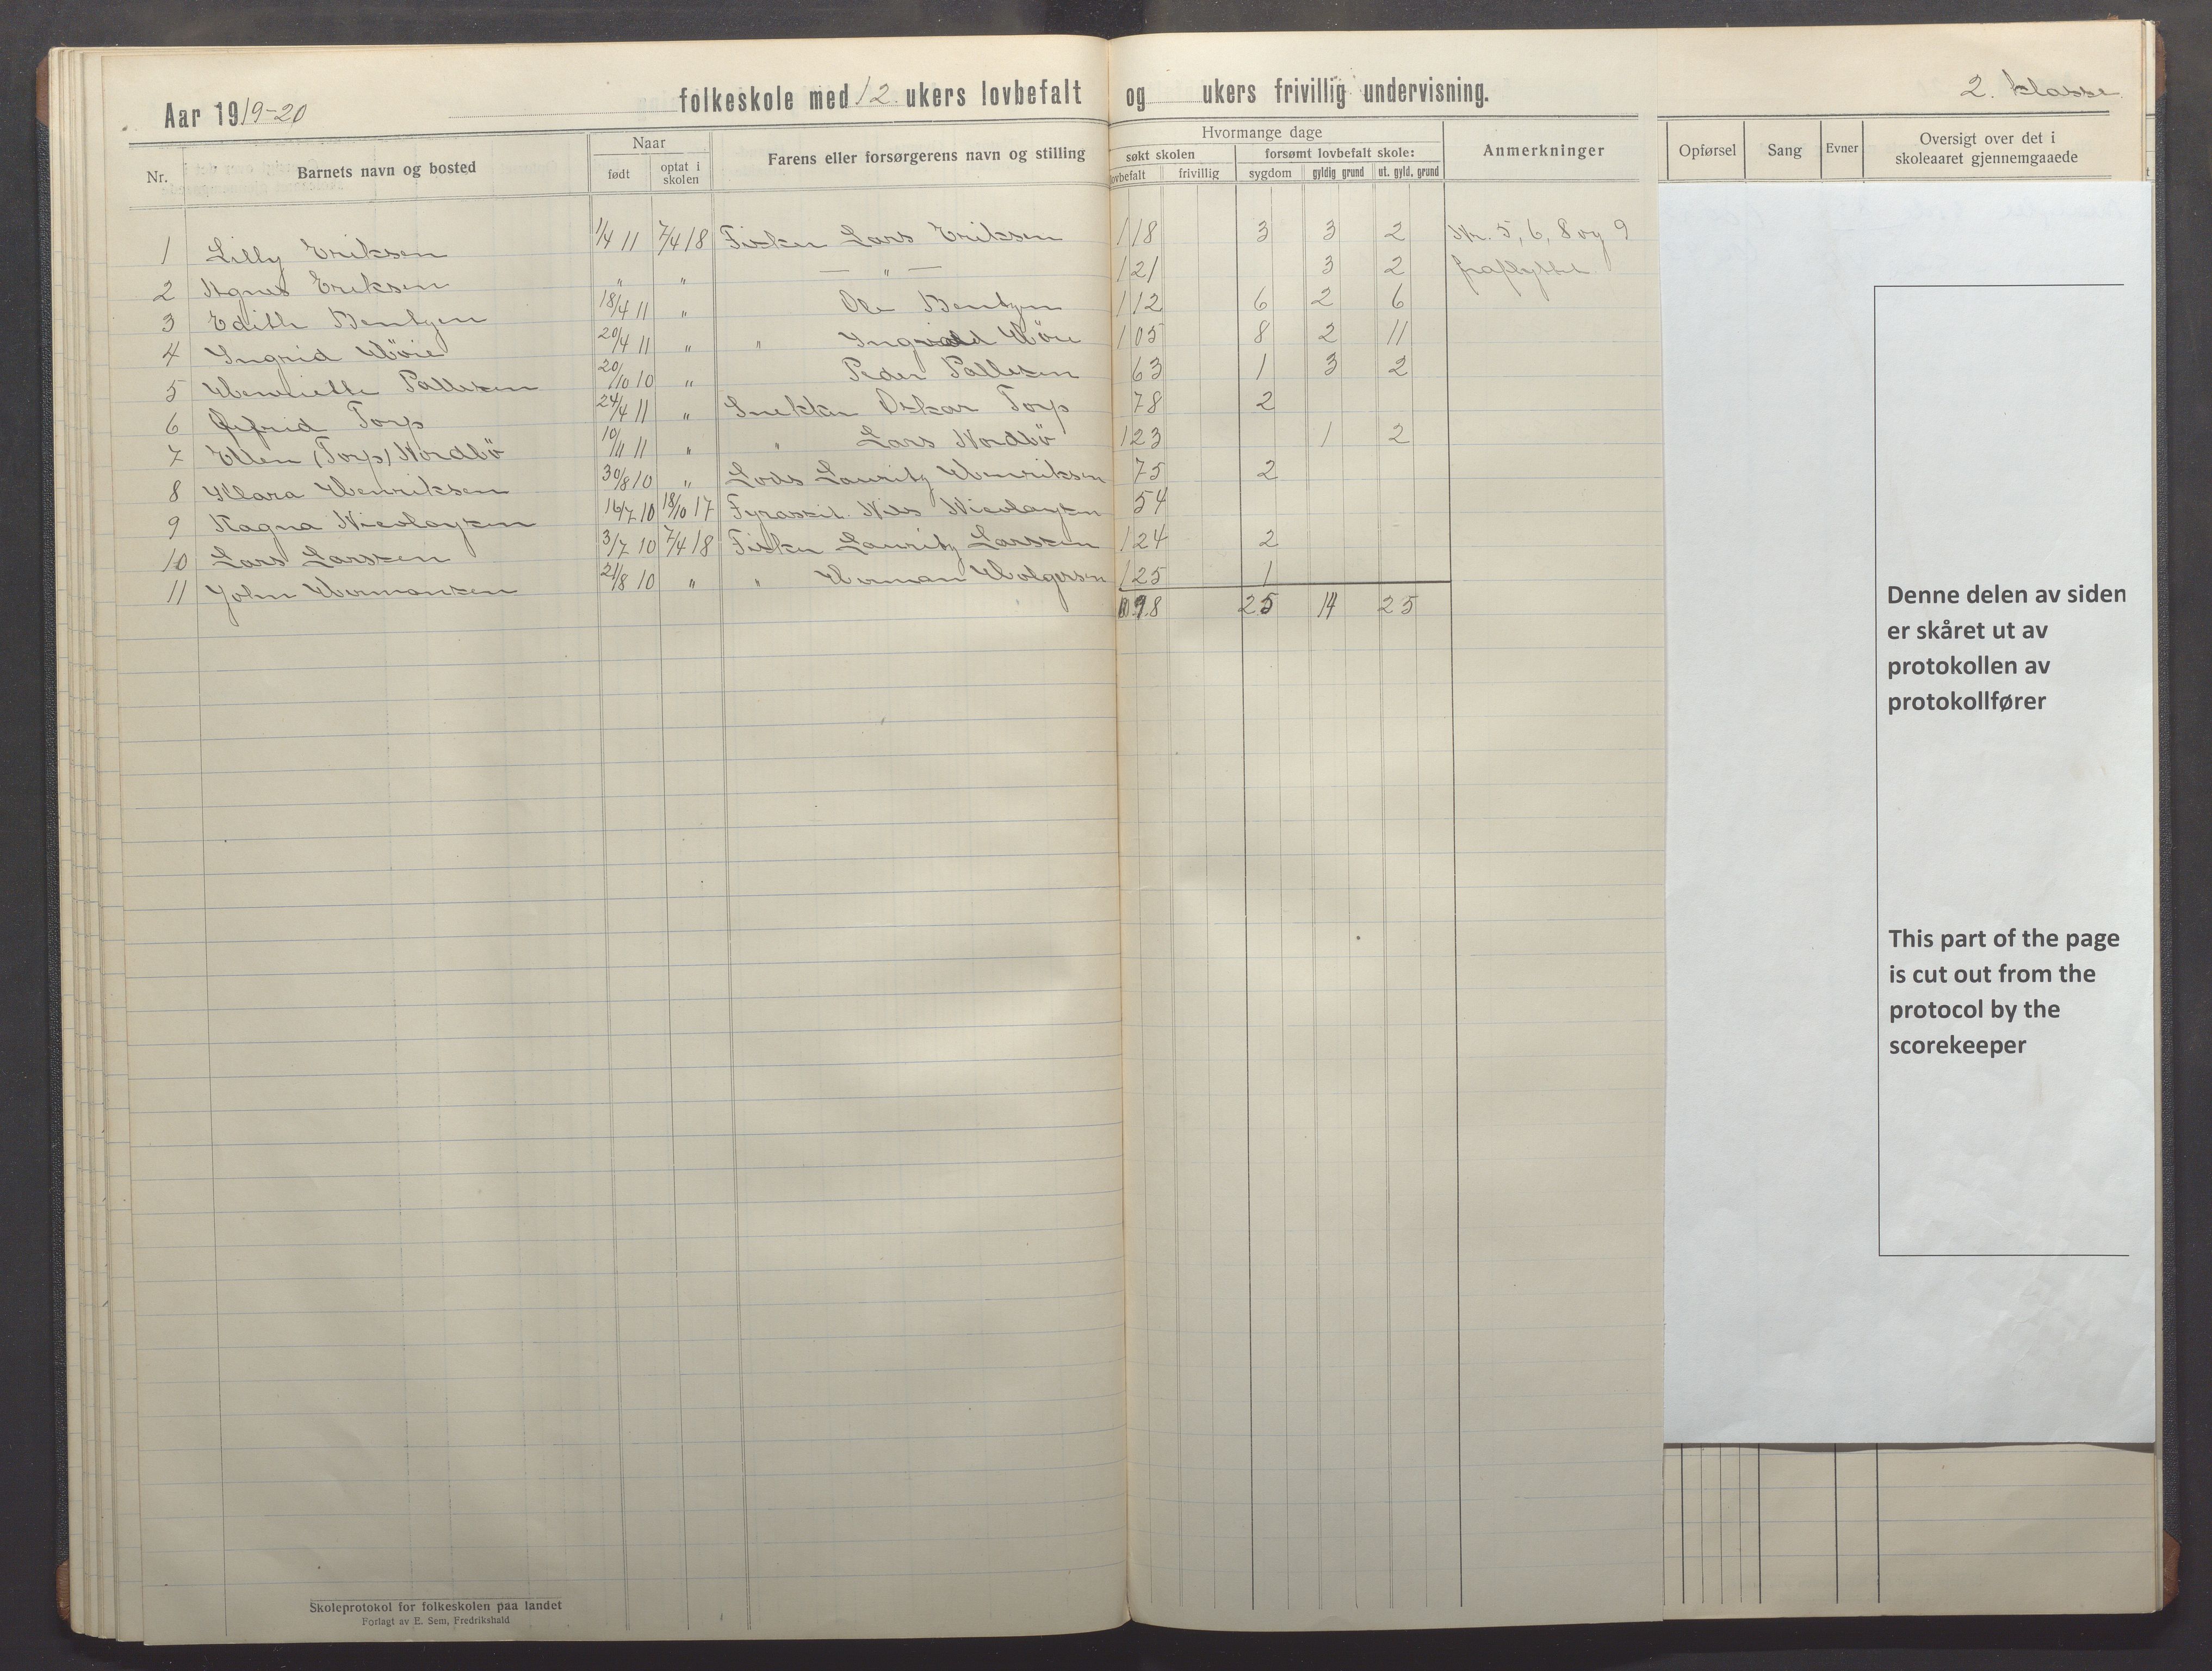 Aar 1919-20 folkeskole med 12 ukers lovbefalt og ukers frivillig undervisning. 2. klasse
Nr. Barnets navn og bosted Naar født optat i skolen Farens eller forsørgerens navn og stilling Hvormange dage søkt skolen lovbefalt frivillig forsømt lovbefalt skole: sygdom gyldig grund ut. gyld. grund Anmerkninger Opførsel Sang Evner Oversigt over det i skoleaaret gjennemgaaede
1 Lilly Eriksen 1/4 11 7/4 18 Fisker Lars Eriksen 118 3 3 2 Nr. 5, 6, 8 og 9
2 Agnes Eriksen " " — " — 121 3 2 fraflyttet
3 Edith Bentzen 18/4 11 " Ole Bentzen 112 6 2 6
4 Ingrid Høie 20/4 11 " " Ingvald Høie 105 8 2 11
5 Henriette Pallesen 20/10 10 " Peder Pallesen 63 1 3 2
6 Torp 24/4 11 " Snekker Oskar Torp 78 2
7 Ellen (Torp) Nordbö 10/11 11 " " Lars Nordbö 123 1 2
8 Klara Henriksen 30/8 10 " Lods Lauritz Henriksen 75 2
9 Ragna Nicolaysen 16/7 10 18/10 17 Fyrassit. Nils Nicolaysen 54
10 Lars Larssen 3/7 10 7/4 18 Fisker Lauritz Larssen 124 2
11 John Hermansen 21/8 10 " " Herman Holgersen 125 1
1098 25 14 25
Denne delen av siden
er skåret ut av
protokollen av
protokollfører
This part of the page
is cut out from the
protocol by the
scorekeeper
Skoleprotokol for folkeskolen paa landet
Forlagt av E. Sem, Fredrikshald